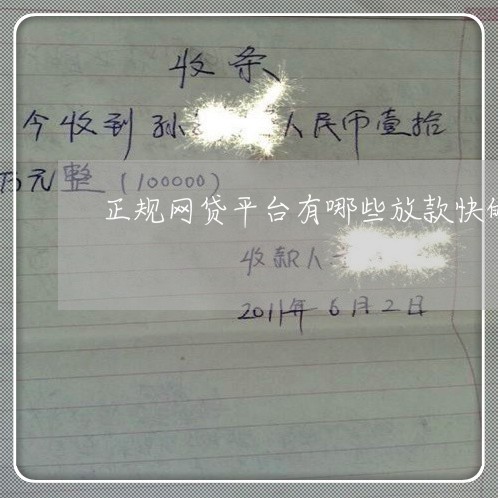 收条
今收到孙 人民币壹拾
万元整（100000）
正规网贷平台有哪些放款快的
收款人
2011年6月2日